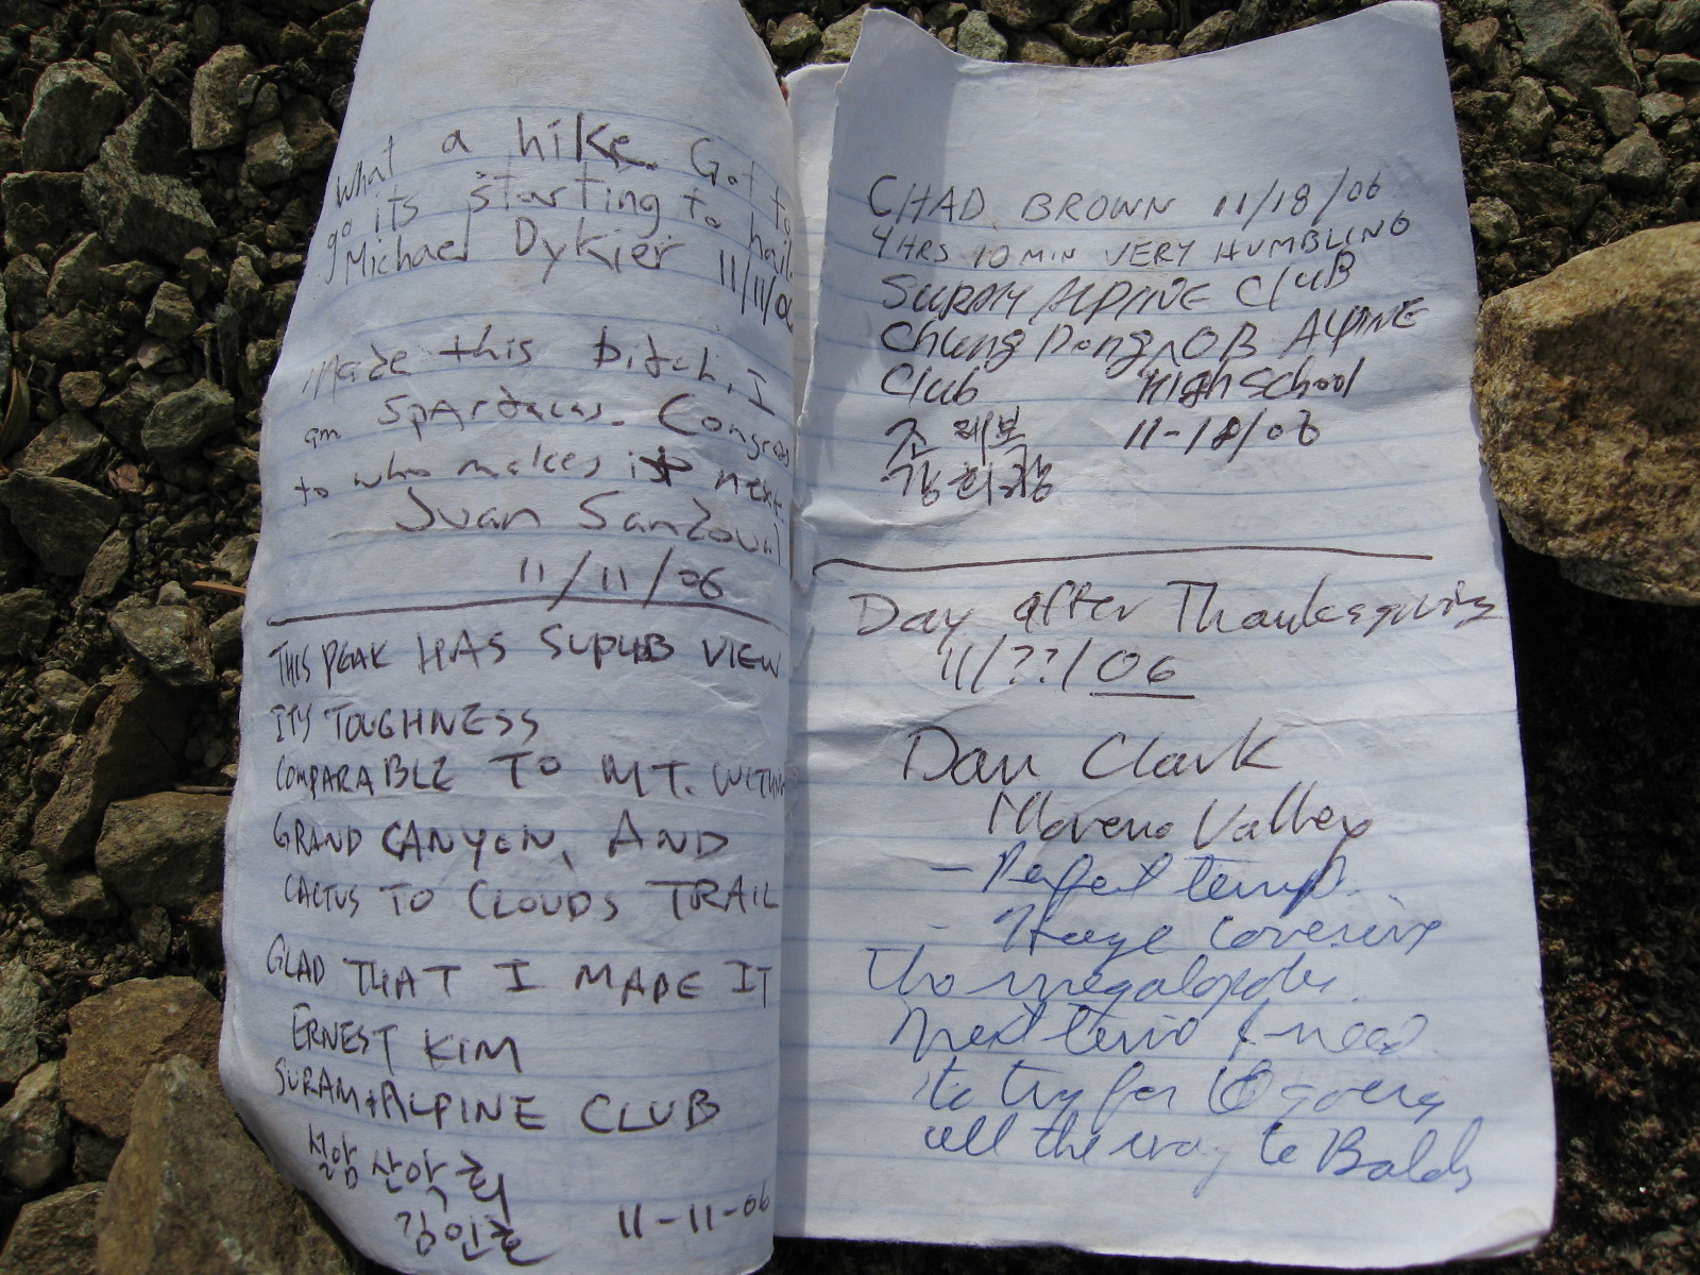 What a hike. Got to
go its starting to hail.
Michael Dykier 11/11/0
Made this bitch, I
am Spartacus. Congrats
to who makes it next
Juan Sandoval
11/11/06
THIS PEAK HAS SUPURB VIEW
ITS TOUGHNESS
COMPARABLE TO MT.
GRAND CANYON, AND
CACTUS TO CLOUDS TRAIL
GLAD THAT I MADE IT
ERNEST KIM
ALPINE CLUB
설암 산악회
김인훈 11-11-06
CHAD BROWN 11/18/06
4 HRS 10 MIN VERY HUMBLING
ALPINE CLUB
Chung Dong OB ALPINE
Club High School
조 11-18/06
Day after Thanksgiving
11/??/06
Dan Clark
Moreno Valley
- Perfect temp.
- Haze covering
the megalopolis.
Next time I need
to try for going
all the way to Baldy